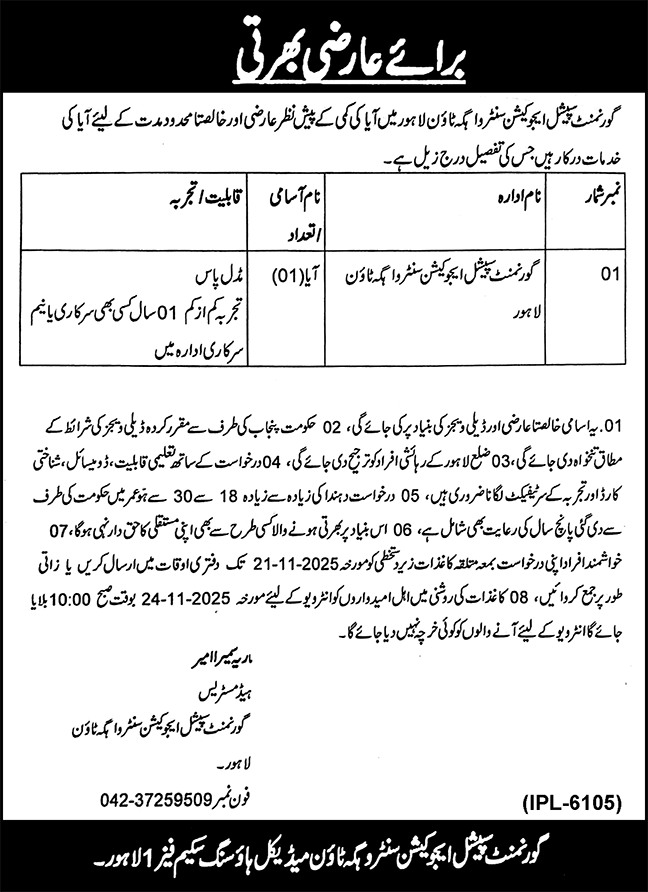 برائے عارضی بھرتی
گورنمنٹ سپیشل ایجوکیشن سنٹر واہگہ ٹاؤن لاہور میں آیا کی کمی کے پیش نظر عارضی اور خالصتا محدود مدت کے لیئے آیا کی
خدمات درکار ہیں جس کی تفصیل درج زیل ہے۔
نمبر شمار نام ادارہ نام آسامی قابلیت / تجربہ
/ تعداد
01 گورنمنٹ سپیشل ایجوکیشن سنٹر واہگہ ٹاؤن آیا (01) مڈل پاس
لاہور تجربہ کم از کم 01 سال کسی بھی سرکاری یا نیم
سرکاری ادارہ میں
01. یہ اسامی خالصتا عارضی اور ڈیلی ویجز کی بنیاد پر کی جائے گی، 02 حکومت پنجاب کی طرف سے مقرر کردہ ڈیلی ویجز کی شرائط کے
مطابق تنخواہ دی جائے گی، 03 ضلع لاہور کے رہائشی افراد کو ترجیح دی جائے گی، 04 درخواست کے ساتھ تعلیمی قابلیت، ڈومیسائل، شناختی
کارڈ اور تجربہ کے سرٹیفکیٹ لگانا ضروری ہیں، 05 درخواست دہندا کی زیادہ سے زیادہ 18 سے 30 سے ہو عمر میں حکومت کی طرف
سے دی گئی پانچ سال کی رعایت بھی شامل ہے، 06 اس بنیاد پر بھرتی ہونے والا کسی طرح سے بھی اپنی مستقلی کا حق دار نہی ہوگا، 07
خواشمند افراد اپنی درخواست بمعہ متلقہ کاغذات زیر دستخطی کو مورخہ 21-11-2025 تک دفتری اوقات میں ارسال کریں یا زاتی
طور پر جمع کروائیں، 08 کاغذات کی روشنی میں اہل امیدواروں کو انٹرویو کے لیئے مورخہ 24-11-2025 بوقت صبح 10:00 بلایا
جائے گا انٹرویو کے لیئے آنے والوں کو کوئی خرچہ نہیں دیا جائے گا۔
ماریہ سمیرا امیر
ہیڈ مسٹریس
گورنمنٹ سپیشل ایجوکیشن سنٹر واہگہ ٹاؤن
لاہور۔
فون نمبر 042-37259509
(IPL-6105)
گورنمنٹ سپیشل ایجوکیشن سنٹر وہگہ ٹاؤن میڈیکل ہاؤسنگ سکیم فیز 1 لاہور۔